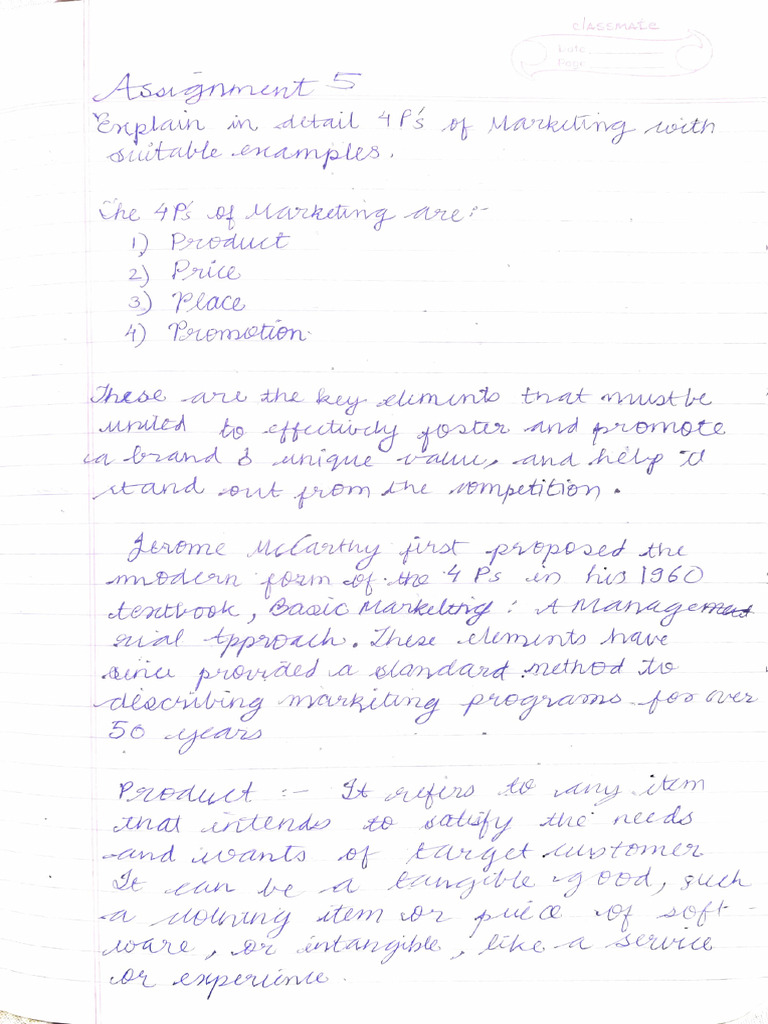 classmate
Date
Page
Assignment 5
Explain in detail 4 P's of Marketing with
suitable examples.
The 4P's of Marketing are:-
1) Product
2) Price
3) Place
4) Promotion.
These are the key elements that must be
united to effectively foster and promote
a brand's unique value, and help it
stand out from the competition.
Jerome McCarthy first proposed the
modern form of the 4 Ps in his 1960
textbook, Basic Marketing: A Manage
rial Approach. These elements have
since provided a standard method to
describing markiting programs for over
50 years
Product :- It refers to any item
that intends to satisfy the needs
and wants of target customer
It can be a tangible good, such
a item or piece of soft-
ware, or intangible, like a service
or experience.